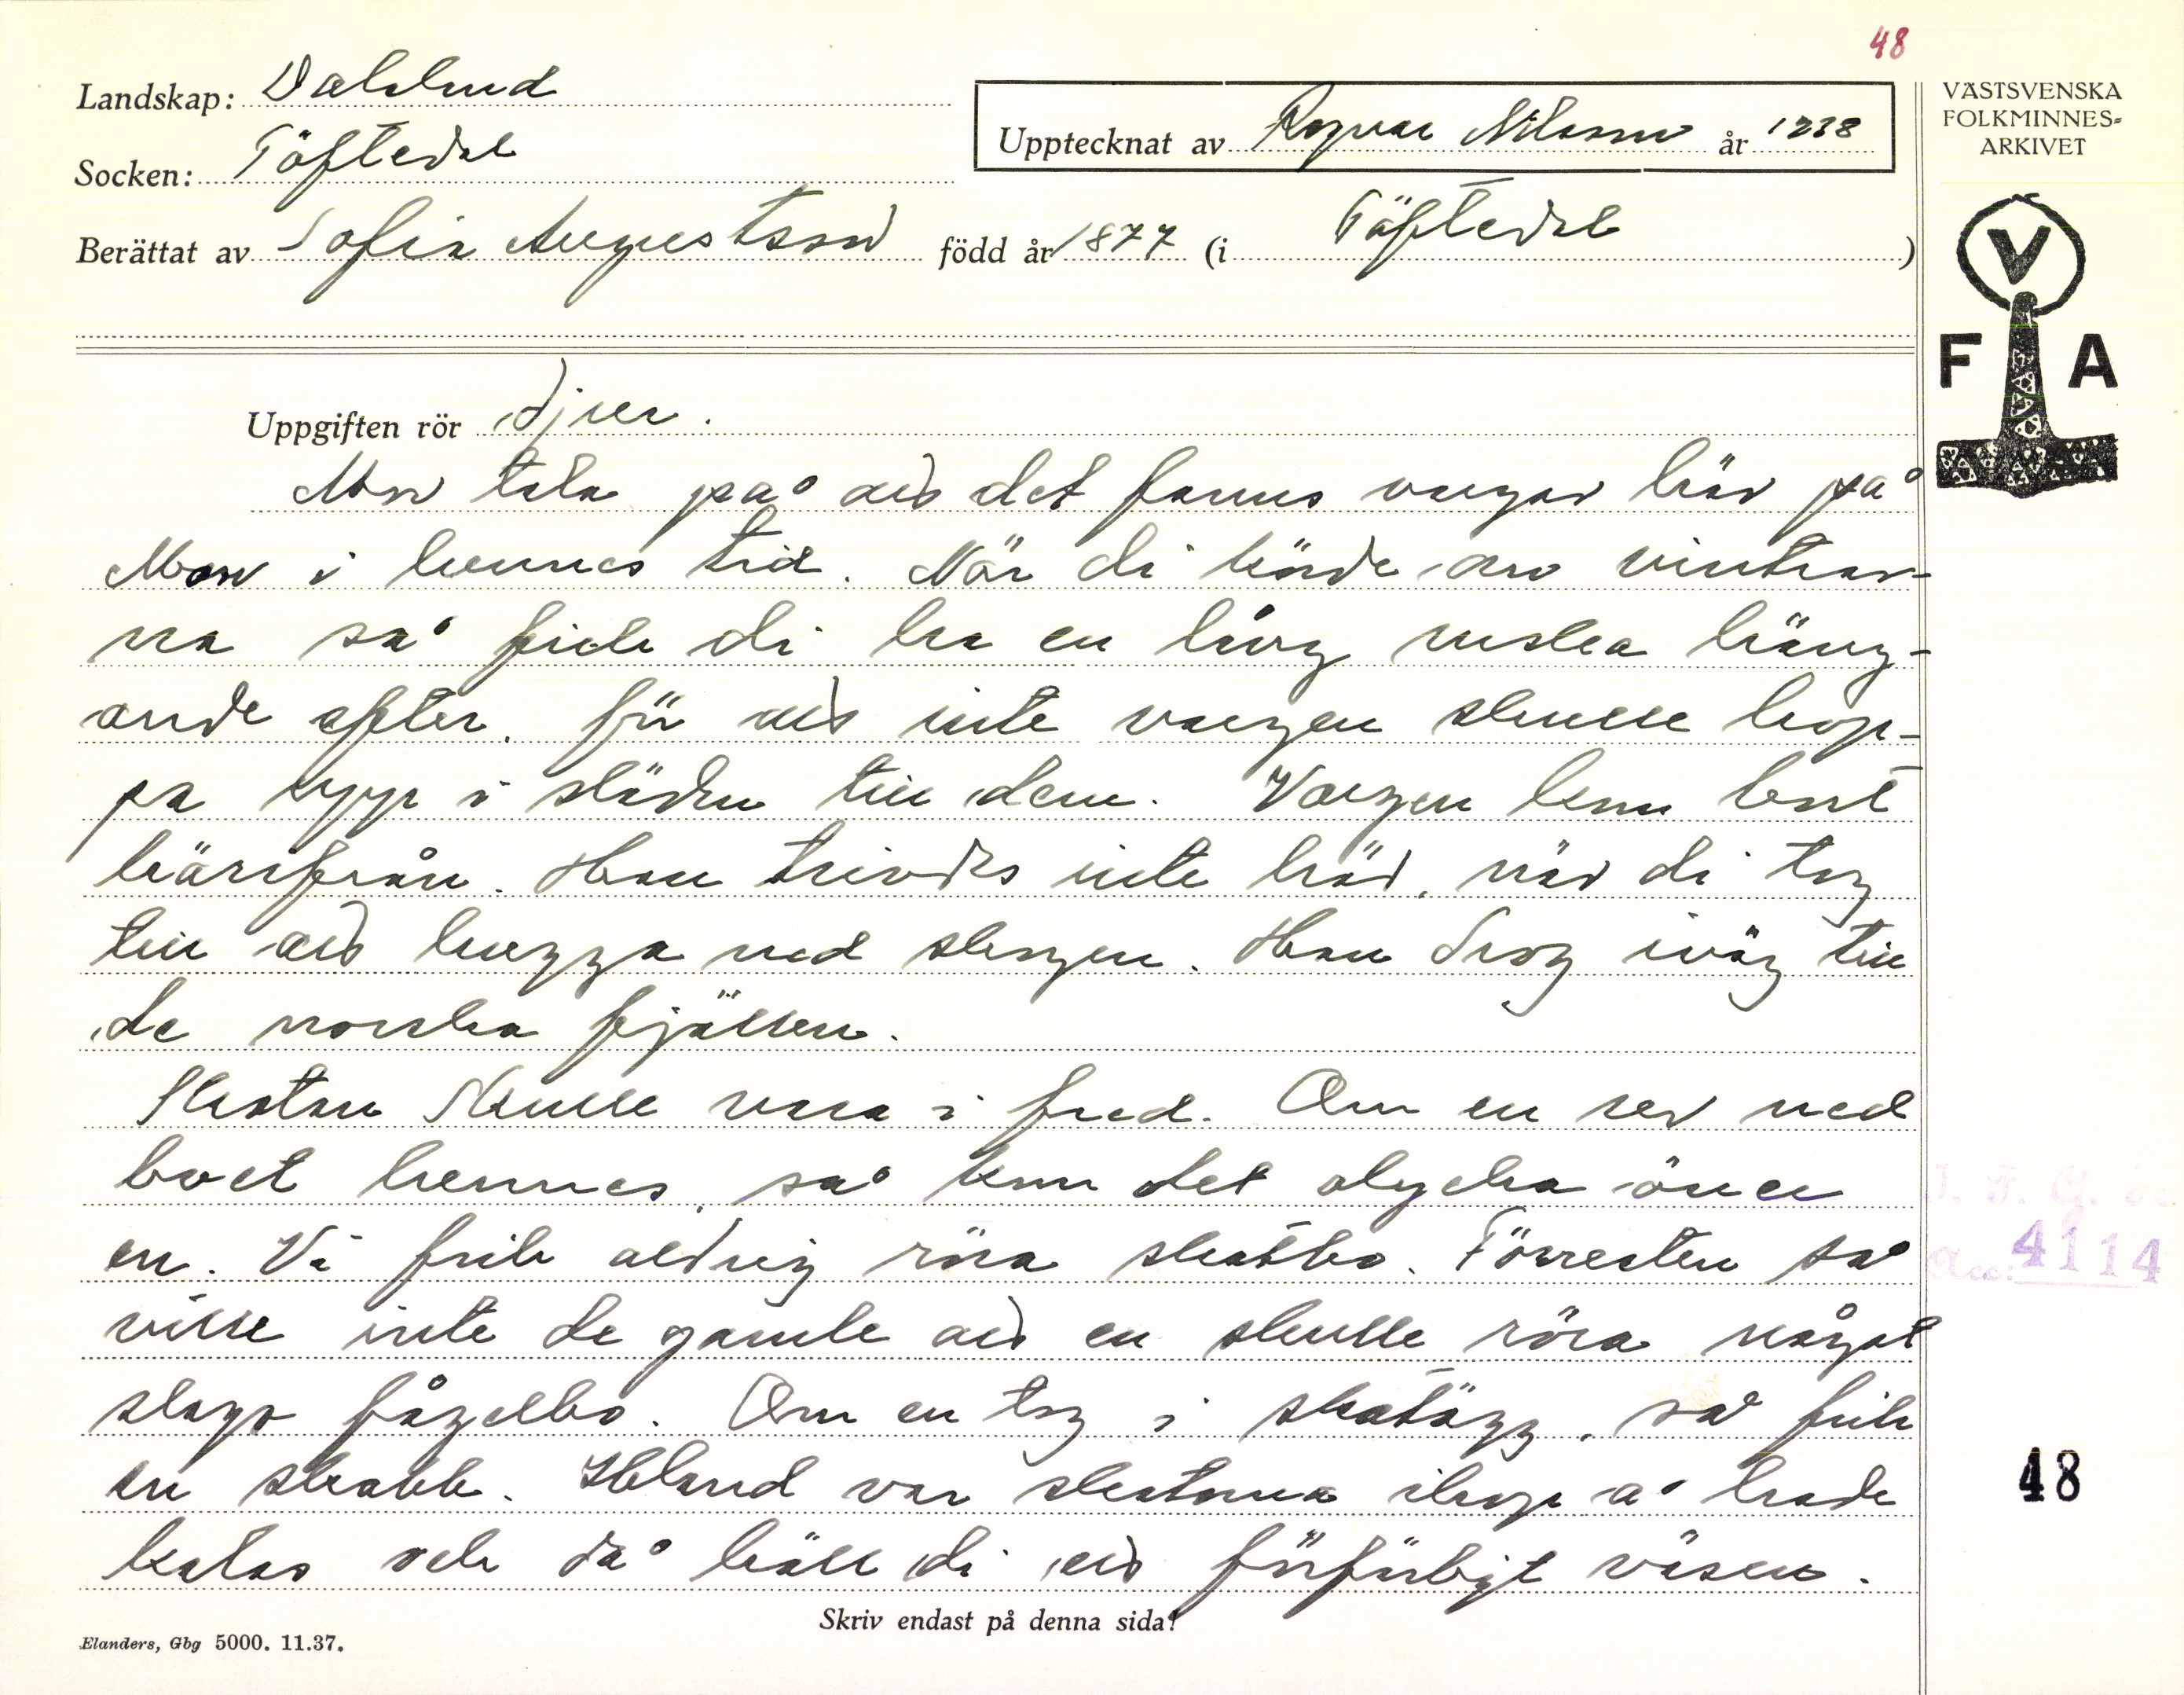 48
Landskap: Dalsland
Socken: Töftedal
Upptecknat av Ragnar Nilsson år 1938
Berättat av Sofia Augustsson född år 1877 (i Töftedal)
VÄSTSVENSKA
FOLKMINNES-
ARKIVET
V
F A
Uppgiften rör Djur.
Mor tala på att det fanns vargar här på
Mon i hennes tid. När di körde om vintrar-
na så fick di ha en lång viska häng-
ande efter, för att inte vargen skulle hop-
pa upp i släden till dem. Vargen kom bort
härifrån. Han trivdes inte här, när di tog
till att hugga ned skogen. Han drog iväg till
de norska fjällen.
Skatan skulle vara i fred. Om en rev ned
boet hennes, så kom det olycka över
en. Vi fick aldrig röra skatbo. Förresten så
ville inte de gamle att en skulle röra något
slags fågelbo. Om en tog i skatägg, så fick
en skabb. Ibland var skatorna ihop å hade
kalas och då höll di ett förfärligt väsen.
Skriv endast på denna sida!
Elanders, Gbg 5000. 11.37.
4114
48